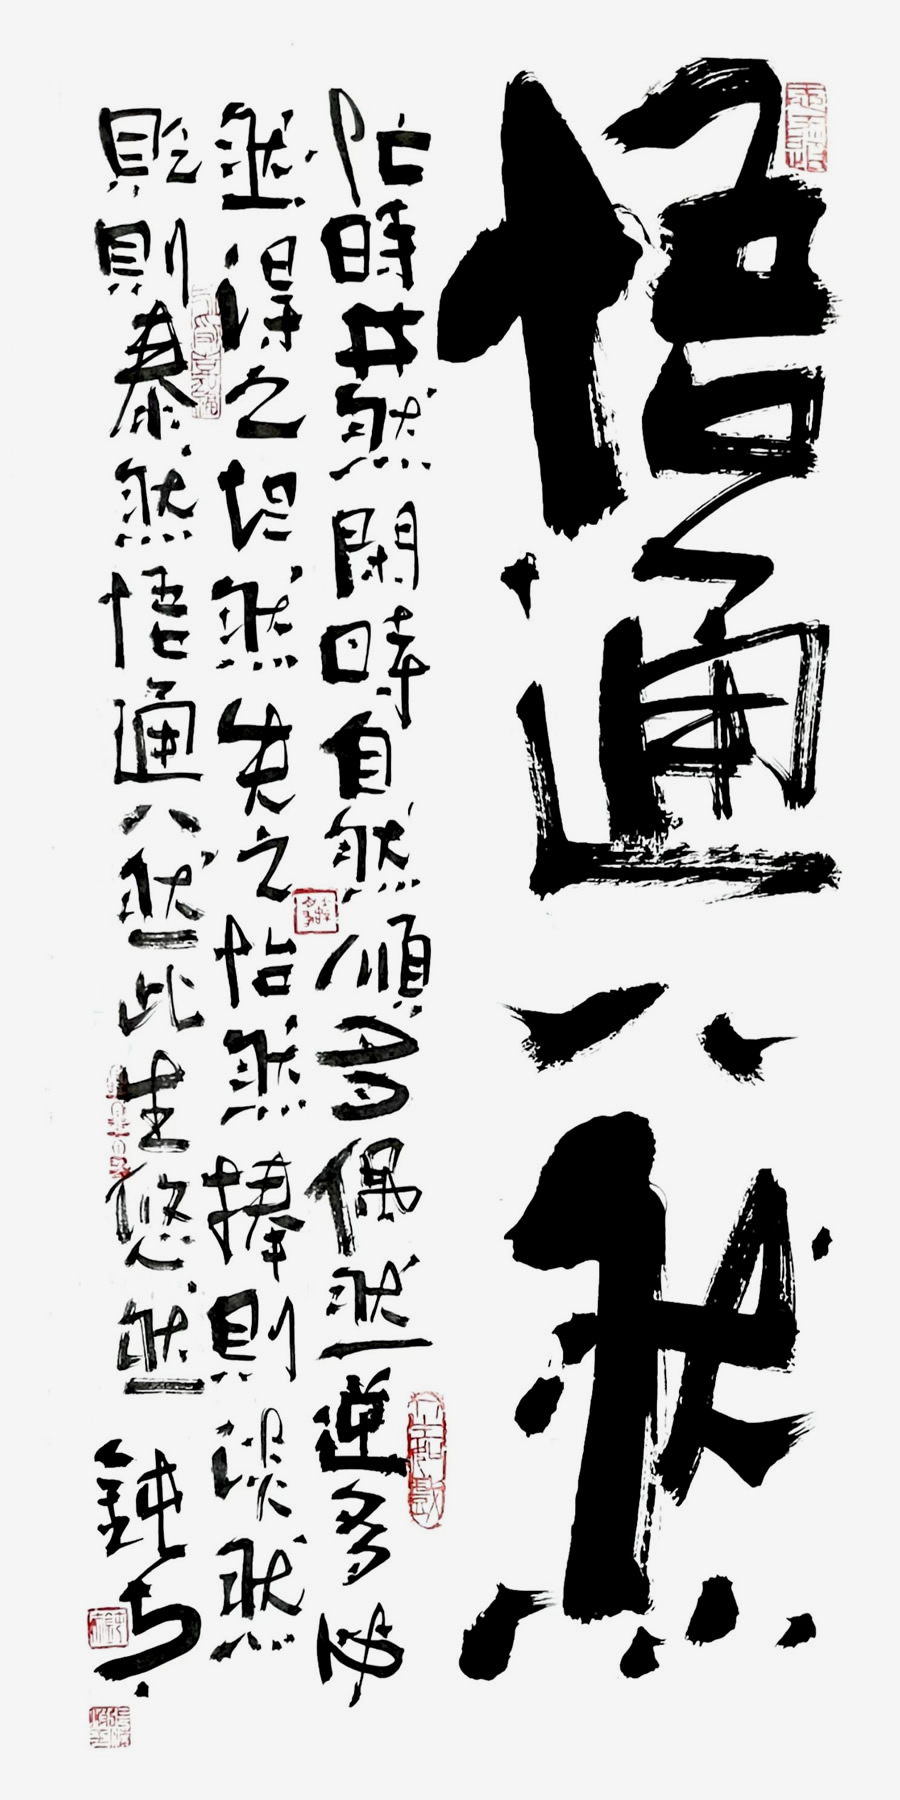 悟通八然
忙時井然閑時自然順多偶然逆多必
然得之坦然失之怡然捧則淡然
貶則泰然悟通八然此生悠然鈍